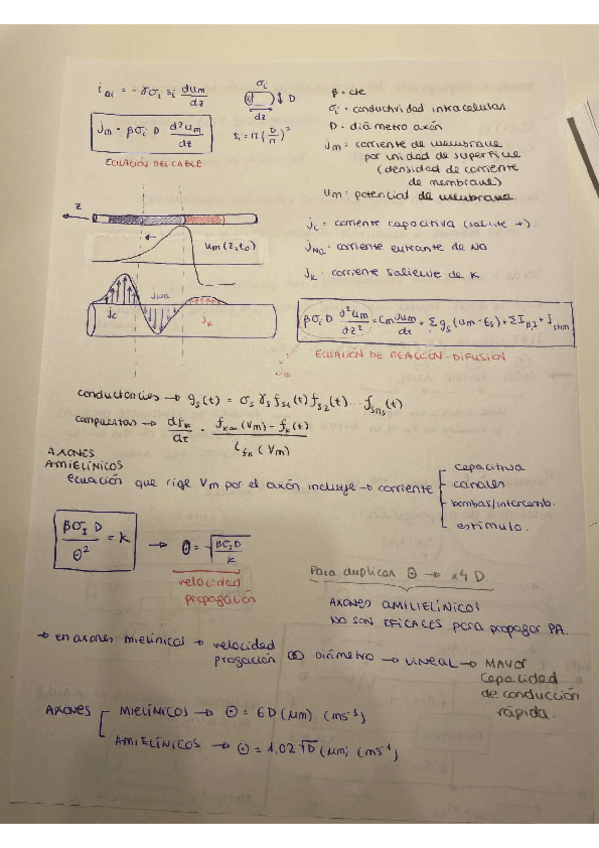 i_ai = - γσi si dum/dz
σi
D
dz
β = cte
σi = conductividad intracelular
jm = βσi D · d²um/dz
si = π(D/π)²
D = diámetro axón
ECUACIÓN DEL CABLE
jm = corriente de membrana
por unidad de superficie
(densidad de corriente
de membrana)
um = potencial de membrana
z
um(z,t0)
jc = corriente capacitiva (saliente +)
jNa = corriente entrante de Na
jk = corriente saliente de K
jc
jNa
jk
βσi D d²um/dz² = Cm dum/dt + Σ gs (um - Es) + Σ IB,I + Istim
ECUACIÓN DE REACCIÓN - DIFUSIÓN
conductancies → gs(t) = σs γs fs1(t) fs2(t) ... fsns(t)
compuertas → dfk/dt = fk∞(Vm) - fk(t) / τfk (Vm)
AXONES
AMIELÍNICOS
ecuación que rige Vm por el axón incluye → corriente
capacitiva
canales
bombas/intercamb.
estímulo.
βσI D / θ² = k → θ = √βσI D / k
velocidad
propagación
Para duplicar θ → x4 D.
AXONES AMILIELÍNICOS
NO SON EFICACES para propagar PA.
→ en axones mielínicos → velocidad
progación ∞ Diámetro → LINEAL → MAYOR
capacidad
de conducción
rápida.
AXONES
MIELÍNICOS → θ = 6D (μm) (ms⁻¹)
AMIELÍNICOS → θ = 1,02 √D (μm) (ms⁻¹)